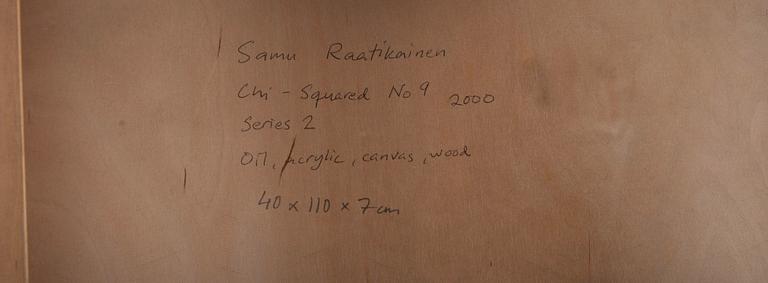 Samu Raatikainen
Chi - Squared No 9 2000
Series 2
Oil, acrylic, canvas, wood
40 x 110 x 7 cm